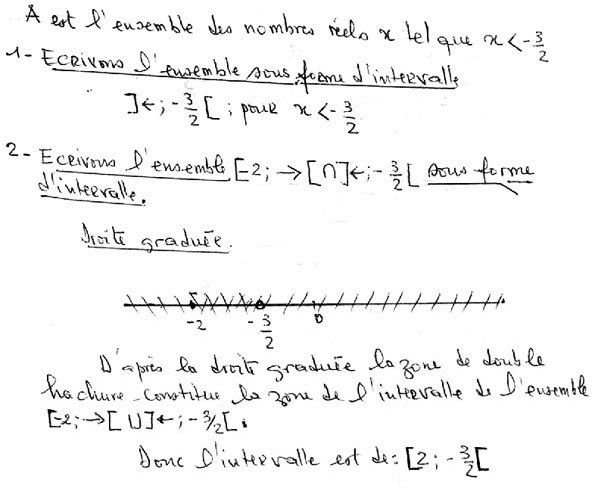 A est l'ensemble des nombres réels x tel que x < -3/2
1- Ecrivons l'ensemble sous forme d'intervalle
]←; -3/2 [ ; pour x < -3/2
2- Ecrivons l'ensemble [-2; →[ ∩ ]←; -3/2 [ sous forme
d'intervalle.
Droite graduée.
-2 -3/2 0
D'après la droite graduée la zone de double
hachure constitue la zone de l'intervalle de l'ensemble
[-2; →[ ∪ ]←; -3/2 [.
Donc l'intervalle est de : [2; -3/2 [